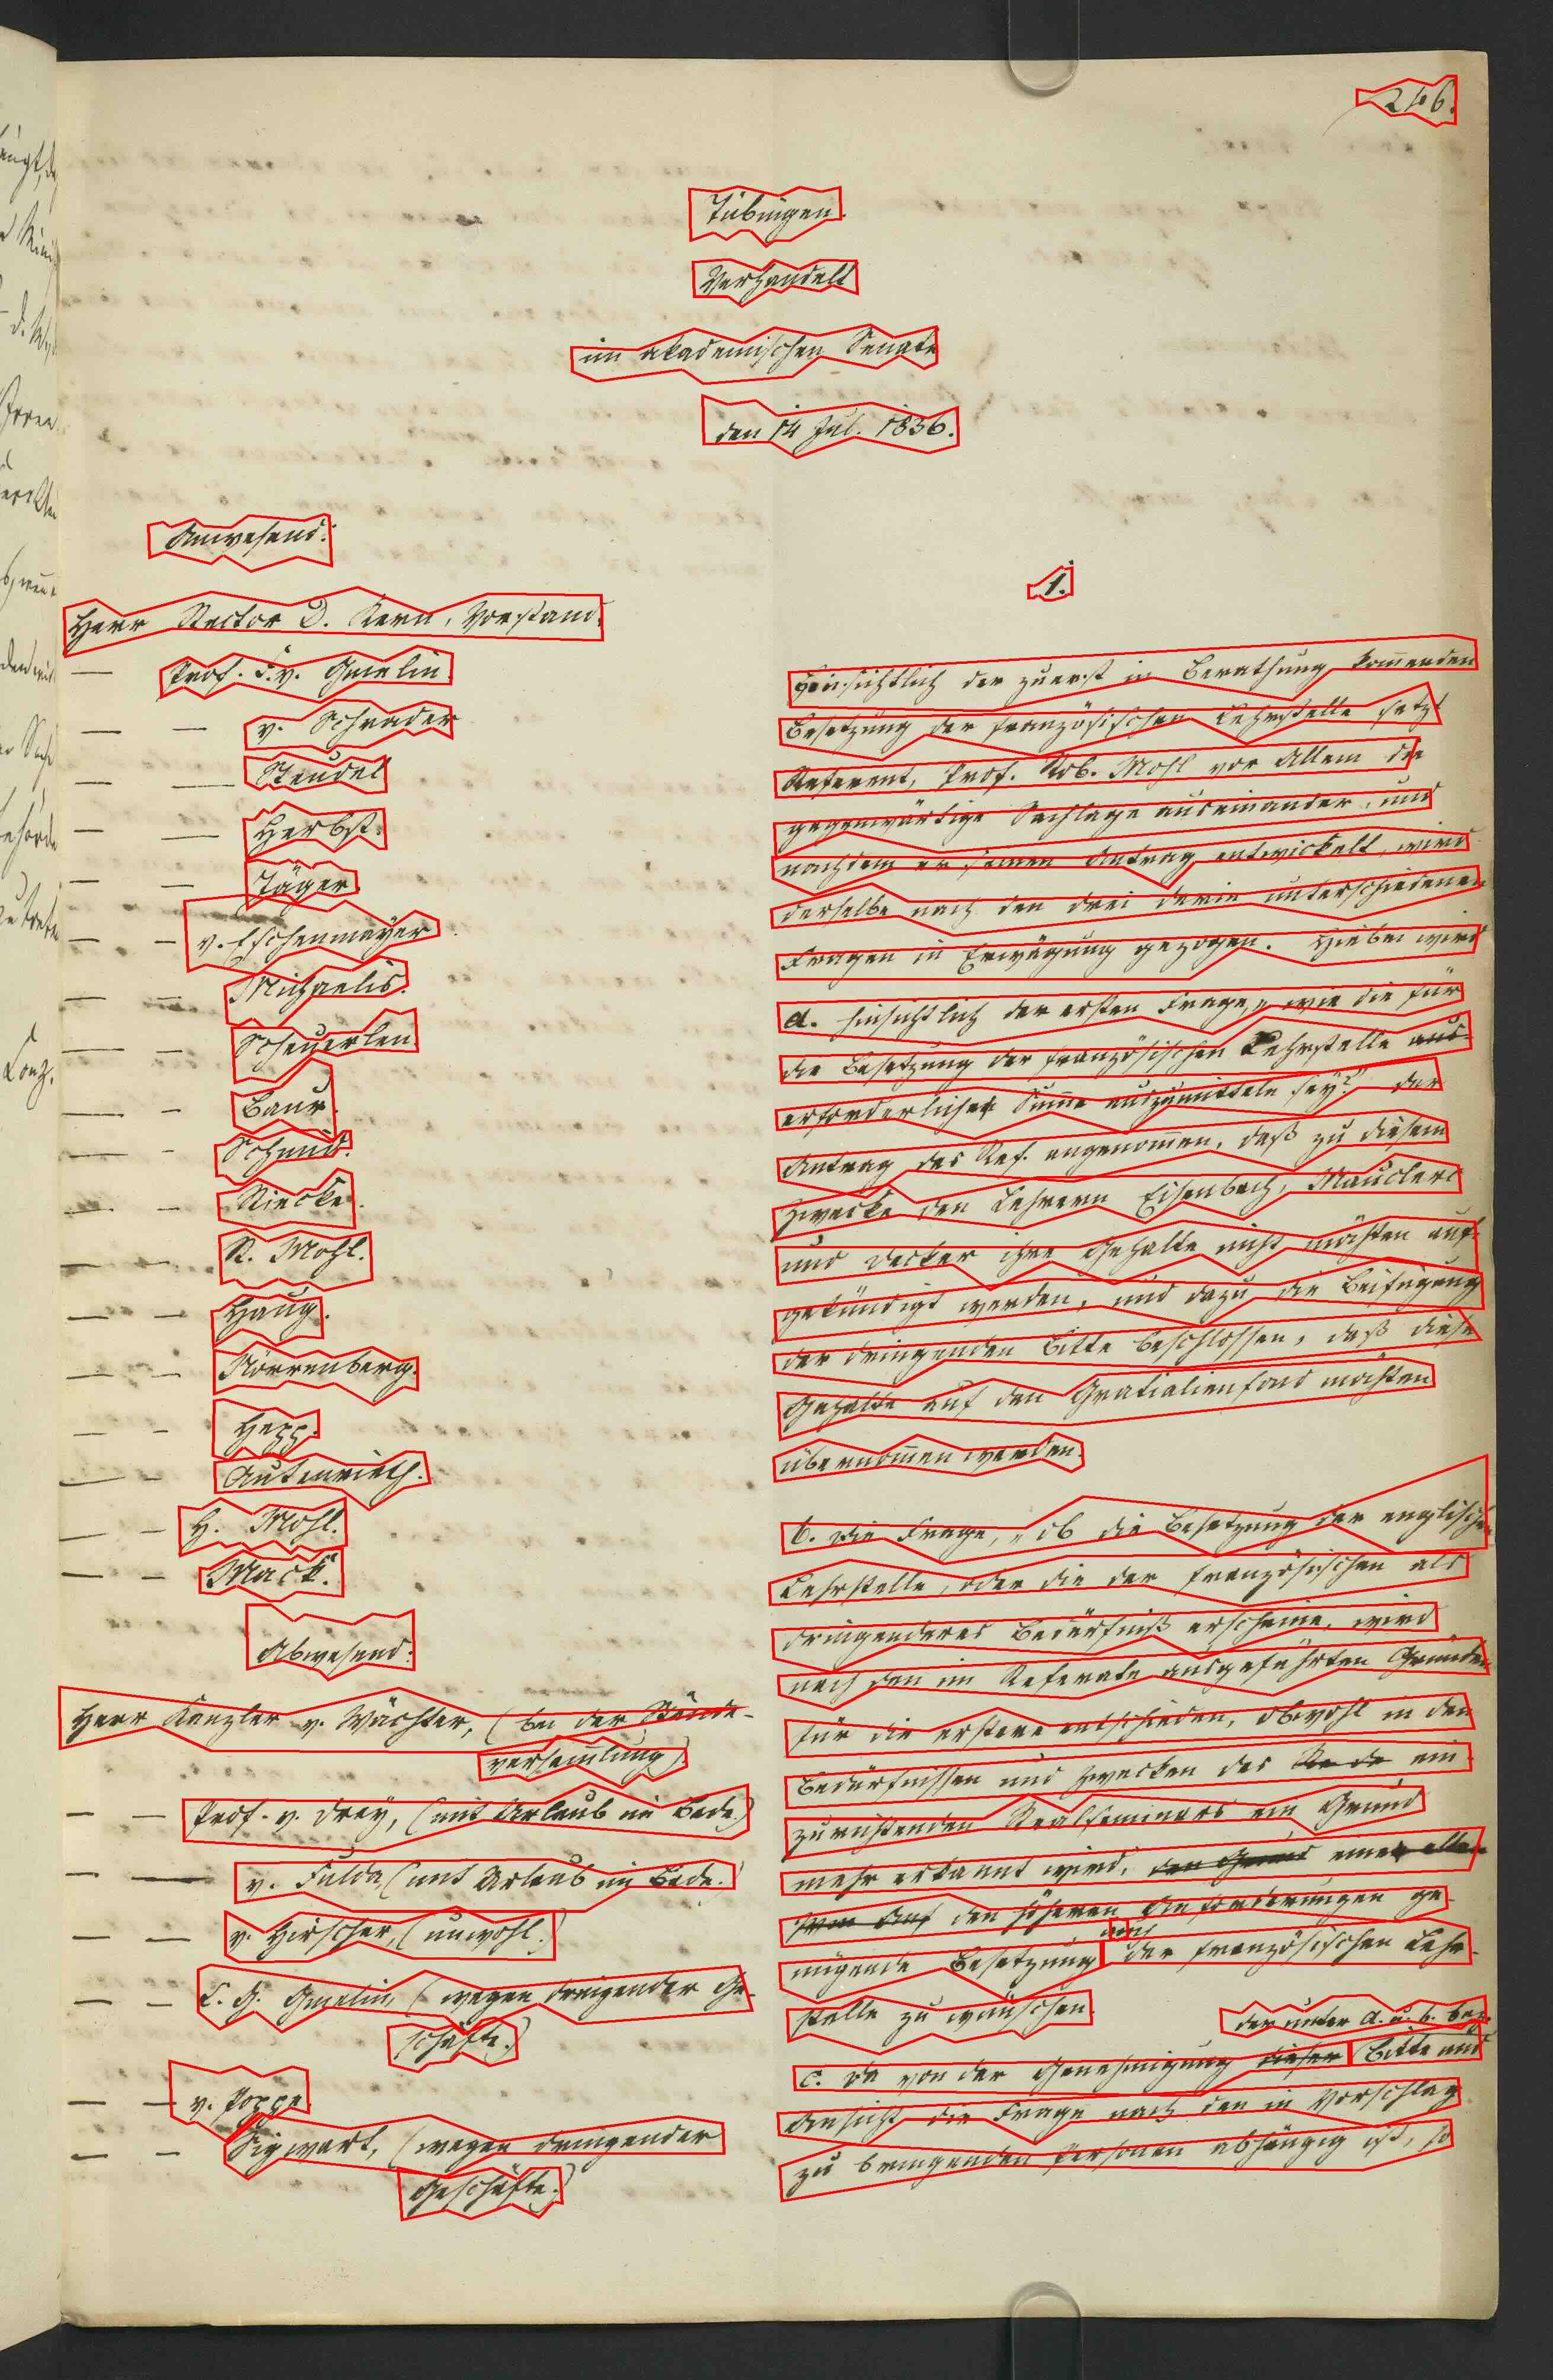 246.
Tübingen.
Verhandelt
im akademischen Senate
den 14 Jul. 1836.
Anwesend:
Herr Rector D. Kern, Vorstand.
— Prof. F. v. Gmelin.
— — v. Schrader
— — Steudel
— — Herbst.
— — Jäger
— — v. Eschenmayer
— — Michaelis.
— — Scheuerlen
— — Baur.
— — Schmid.
— — Riecke.
— — R. Mohl.
— — Haug.
— — Nörrenberg.
— — Hepp.
— — Autenrieth.
— — H. Mohl.
— — Mack.
Abwesend:
Herr Kanzler v. Wächter, (bei der Stände-
versam̄lung)
— — Prof. v. Drey, (mit Urlaub im Bade.)
— — v. Fulda, (mit Urlaub im Bade.)
— — v. Hirscher, (unwohl.)
— — C. G. Gmelin, (wegen dringender Ge-
schäfte.)
— — v. Poppe
— — Sigwart, (wegen dringender
Geschäfte.)
1.
Hinsichtlich der zuerst in Berathung kom̄enden
Besetzung der französischen Lehrstelle setzt
Referent, Prof. Rob. Mohl vor Allem die
gegenwärtige Sachlage auseinander, und
nachdem er seinen Antrag entwickelt, wird
derselbe nach den drei darin unterschiedenen
Fragen in Erwägung gezogen. Hiebei wird
a. hinsichtlich der ersten Frage, „wie die für
die Besetzung der französischen Lehrstelle
erforderliche Sum̄e auszumitteln sey?" der
Antrag des Ref. angenom̄en, daß zu diesem
Zwecke den Lehrern Eisenbach, Mauclerc
und Decker ihre Gehalte nicht möchten auf-
gekündigt werden, und dazu die Beifügung
der dringenden Bitte beschlossen, daß diese
Gehalte auf den Gratialienfond möchten
übernom̄en werden.
b. Die Frage, „ob die Besetzung der englischen
Lehrstelle, oder die der französischen als
dringenderes Bedürfniß erscheine, wird
nach den im Referate ausgeführten Gründen
für die erstere entschieden, obwohl in den
Bedürfnissen und Zwecken des ein
zurichtenden Realseminars ein Grund
mehr erkannt wird, eine
den höheren Anforderungen ge-
nügende Besetzung auch der französischen Lehr-
stelle zu wünschen.
der unter a. u. b. bez.
c. Da von der Genehmigung dieser Bitte und
Ansicht die Frage nach den in Vorschlag
zu bringenden Personen abhängig ist, so